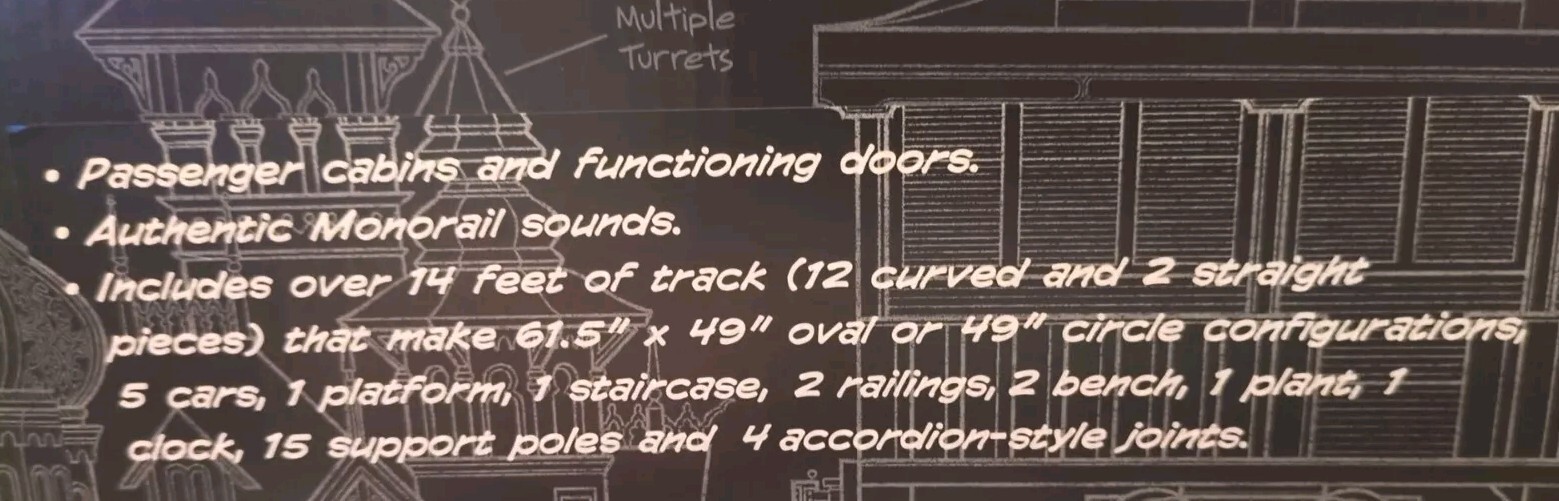 Multiple
Turrets
• Passenger cabins and functioning doors.
• Authentic Monorail sounds.
• Includes over 14 feet of track (12 curved and 2 straight
pieces) that make 61.5" x 49" oval or 49" circle configurations,
5 cars, 1 platform, 1 staircase, 2 railings, 2 bench, 1 plant, 1
clock, 15 support poles and 4 accordion-style joints.